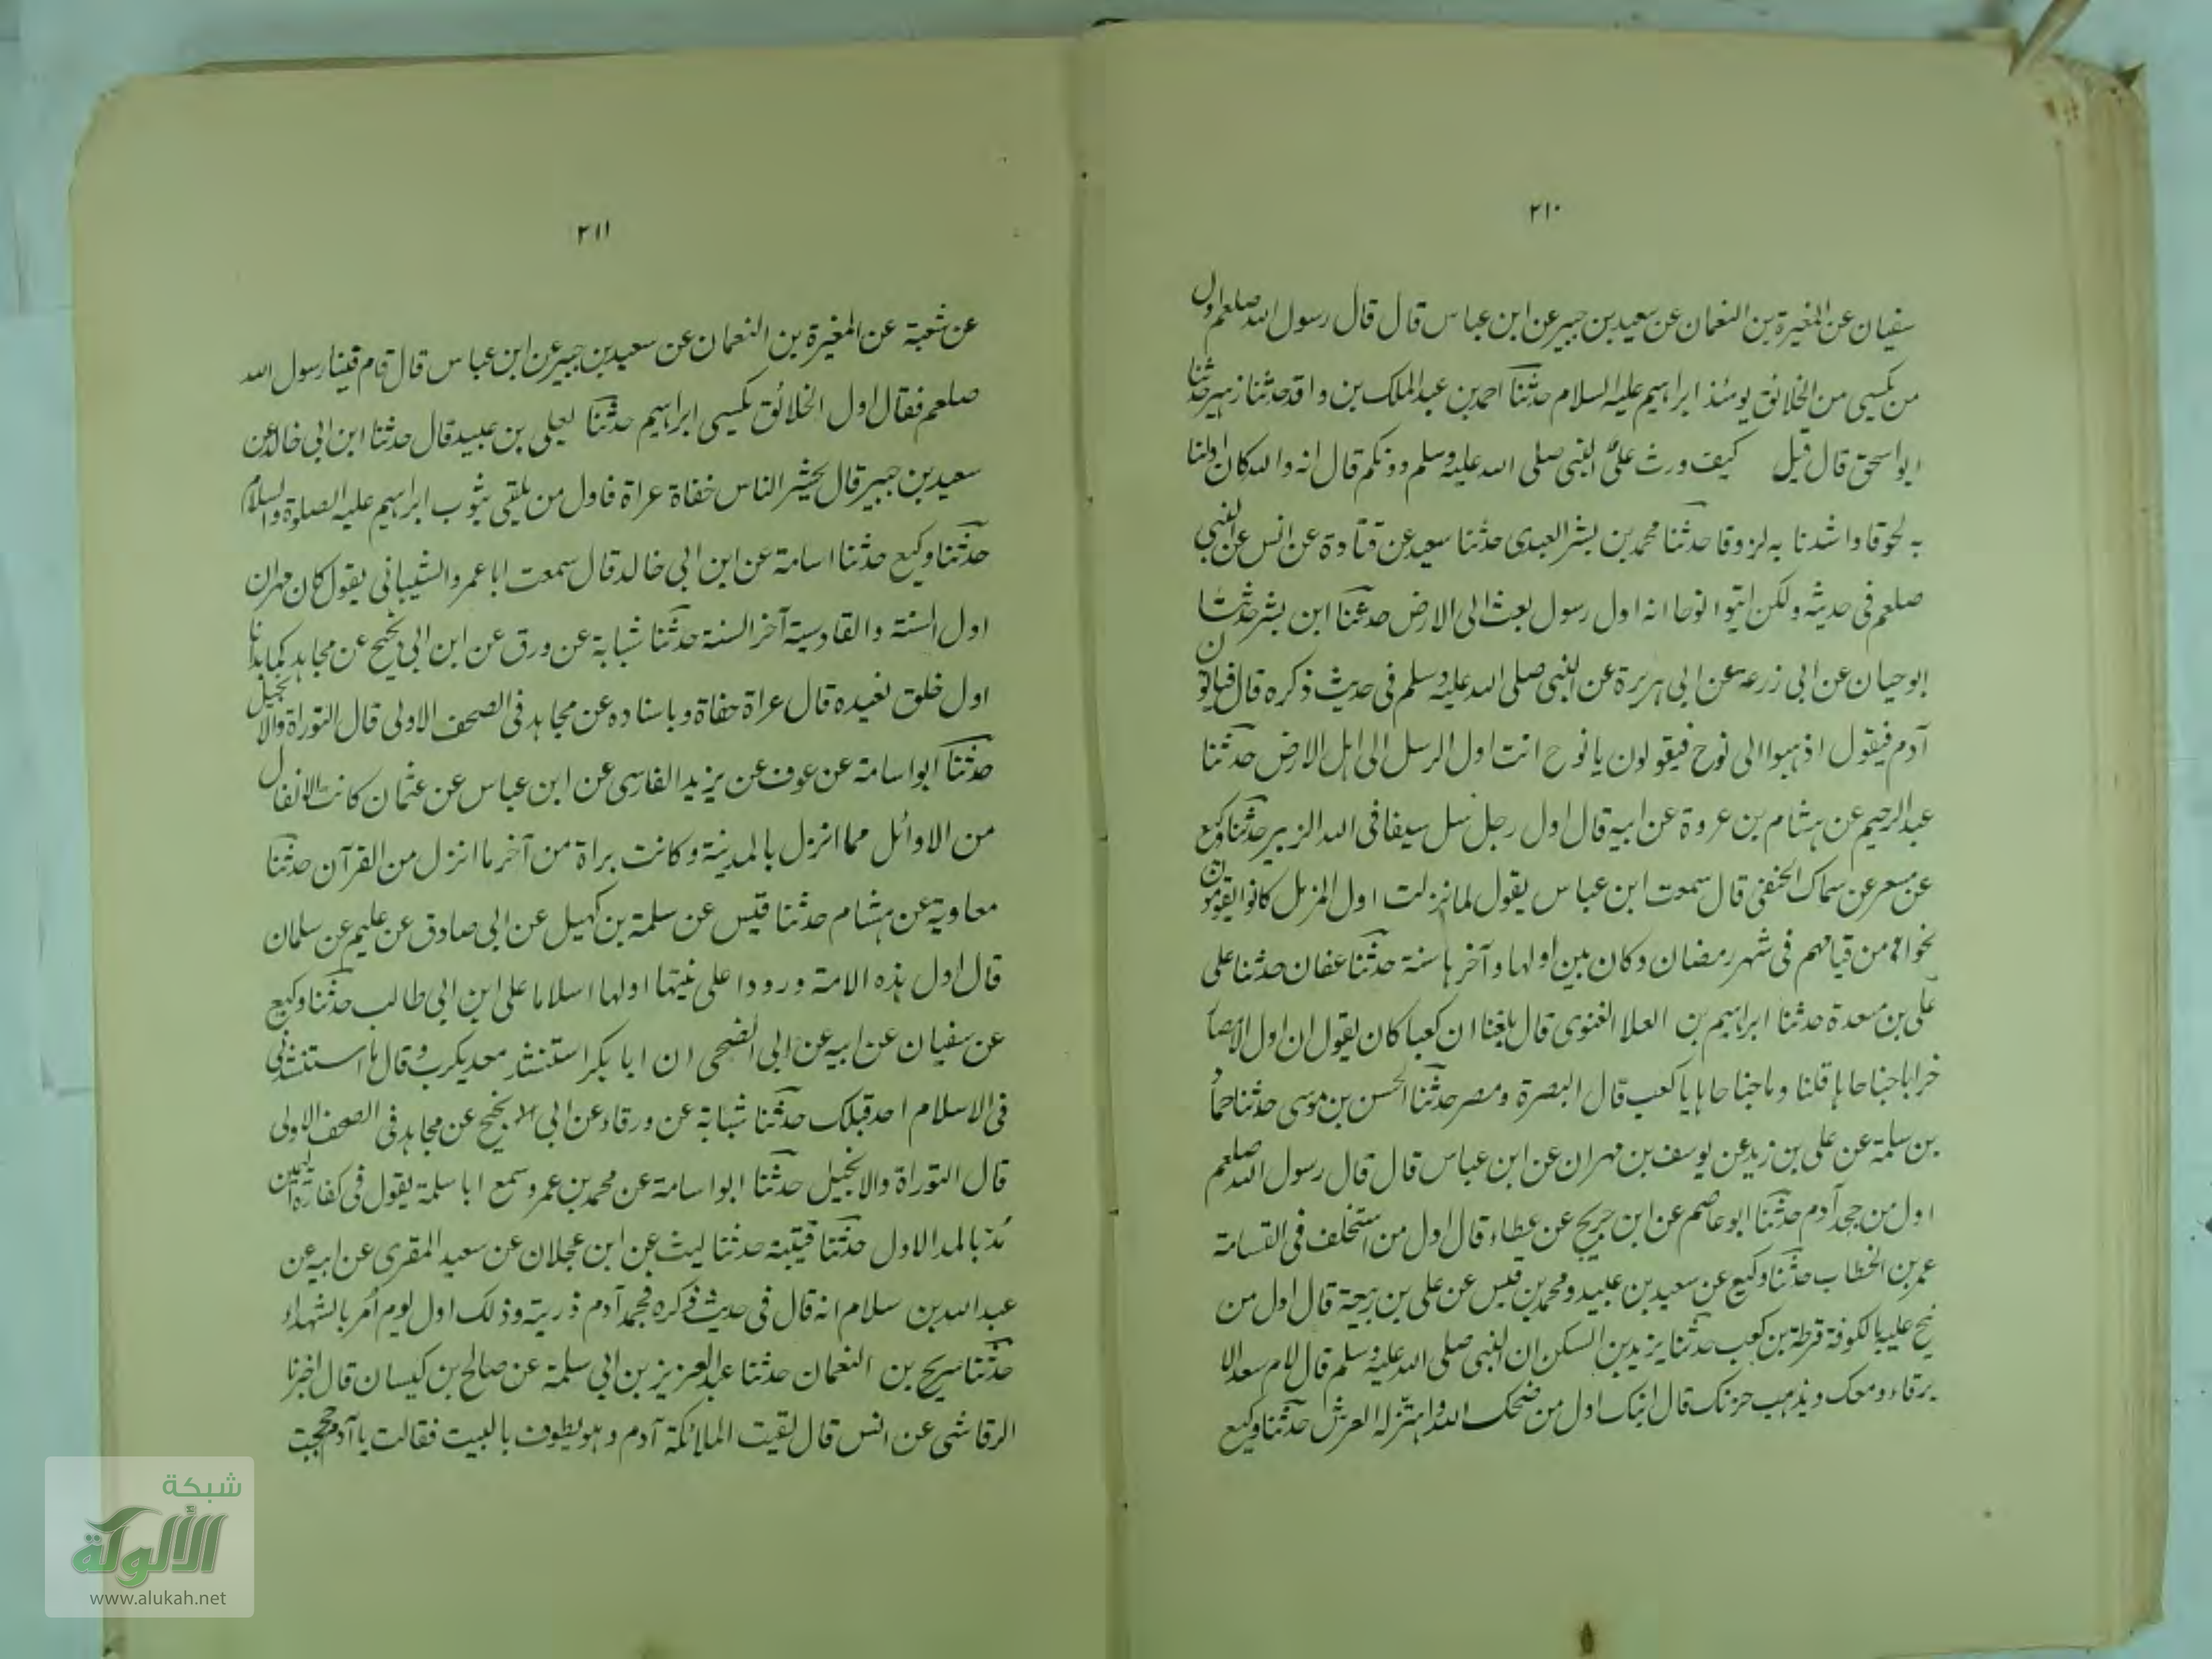 ٢١٠
سفيان عن المغيرة بن النعمان عن سعيد بن جبير عن ابن عباس قال قال رسول الله صلعم اول
من يكسى من الخلائق يومئذ ابراهيم عليه السلام حدثنا احمد بن عبد الملك بن واقد حدثنا زهير حدثنا
ابو اسحق قال قيل كيف ورث علىّ النبى صلى الله عليه وسلم دونكم قال انه والله كان اولنا
به لحوقا واشدنا به لزوقا حدثنا محمد بن بشر العبدى حدثنا سعيد عن قتادة عن انس عن النبى
صلعم فى حديثه ولكن ايتوا نوحا انه اول رسول بعث الى الارض حدثنا ابن بشر حدثنا
ابو حيان عن ابى زرعة عن ابى هريرة عن النبى صلى الله عليه وسلم فى حديث ذكره قال فياتون
آدم فيقول اذهبوا الى نوح فيقولون يا نوح انت اول الرسل الى اهل الارض حدثنا
عبد الرحيم عن هشام بن عروة عن ابيه قال اول رجل سل سيفا فى الله الزبير حدثنا وكيع
عن مسعر عن سماك الحنفى قال سمعت ابن عباس يقول لما نزلت اول المزمل كانوا يقومون
نحوا من قيامهم فى شهر رمضان وكان بين اولها وآخرها سنة حدثنا عفان حدثنا على
على بن مسعدة حدثنا ابراهيم بن العلا الغنوى قال بلغنا ان كعبا كان يقول ان اول الامصار
خرابا جناحاها قلنا وما جناحاها يا كعب قال البصرة ومصر حدثنا الحسن بن موسى حدثنا حماد
بن سلمة عن على بن زيد عن يوسف بن مهران عن ابن عباس قال قال رسول الله صلعم
اول من جحد آدم حدثنا ابو عاصم عن ابن جريج عن عطاء قال اول من استخلف فى القسامة
عمر بن الخطاب حدثنا وكيع عن سعيد بن عبيد ومحمد بن قيس عن على بن ربيعة قال اول من
نيح عليه بالكوفة قرظة بن كعب حدثنا يزيد بن السكن ان النبى صلى الله عليه وسلم قال لام سعد الا
يرقاء دمعك ويذهب حزنك قال ابنك اول من ضحك الله واهتز له العرش حدثنا وكيع
٢١١
عن شعبة عن المغيرة بن النعمان عن سعيد بن جبير عن ابن عباس قال قام فينا رسول الله
صلعم فقال اول الخلائق يكسى ابراهيم حدثنا يعلى بن عبيد قال حدثنا ابن ابى خالد عن
سعيد بن جبير قال يحشر الناس حفاة عراة فاول من يلقى بثوب ابراهيم عليه الصلوة والسلام
حدثنا وكيع حدثنا اسامة عن ابن ابى خالد قال سمعت ابا عمرو الشيبانى يقول كان مهران
اول السنة والقادسية آخر السنة حدثنا شبابة عن ورق عن ابن ابى نجيح عن مجاهد كما بدانا
اول خلق نعيده قال عراة حفاة وباسناده عن مجاهد فى الصحف الاولى قال التوراة والانجيل
حدثنا ابو اسامة عن عوف عن يزيد الفارسى عن ابن عباس عن عثمان كانت الانفال
من الاوائل مما انزل بالمدينة وكانت براة من آخر ما انزل من القرآن حدثنا
معاوية عن هشام حدثنا قيس عن سلمة بن كهيل عن ابى صادق عن عليم عن سلمان
قال اول هذه الامة ورودا على نبيها اولها اسلاما على ابن ابى طالب حدثنا وكيع
عن سفيان عن ابيه عن ابى الضحى ان ابا بكر استنشد معديكرب وقال ما استنشدنى
فى الاسلام احد قبلك حدثنا شبابة عن ورقاء عن ابى نجيح عن مجاهد فى الصحف الاولى
قال التوراة والانجيل حدثنا ابو اسامة عن محمد بن عمرو سمع ابا سلمة يقول فى كفارة اليمين
مُدّ بالمد الاول حدثنا قتيبة حدثنا ليث عن ابن عجلان عن سعيد المقرى عن ابيه عن
عبد الله بن سلام انه قال فى حديث ذكره فجحد آدم ذريته وذلك اول يوم اُمر بالشهداء
حدثنا سريح بن النعمان حدثنا عبد العزيز بن ابى سلمة عن صالح بن كيسان قال اخبرنا
الرقاشى عن انس قال لقيت الملائكة آدم وهو يطوف بالبيت فقالت يا آدم حججت
شبكة
الألوكة
www.alukah.net